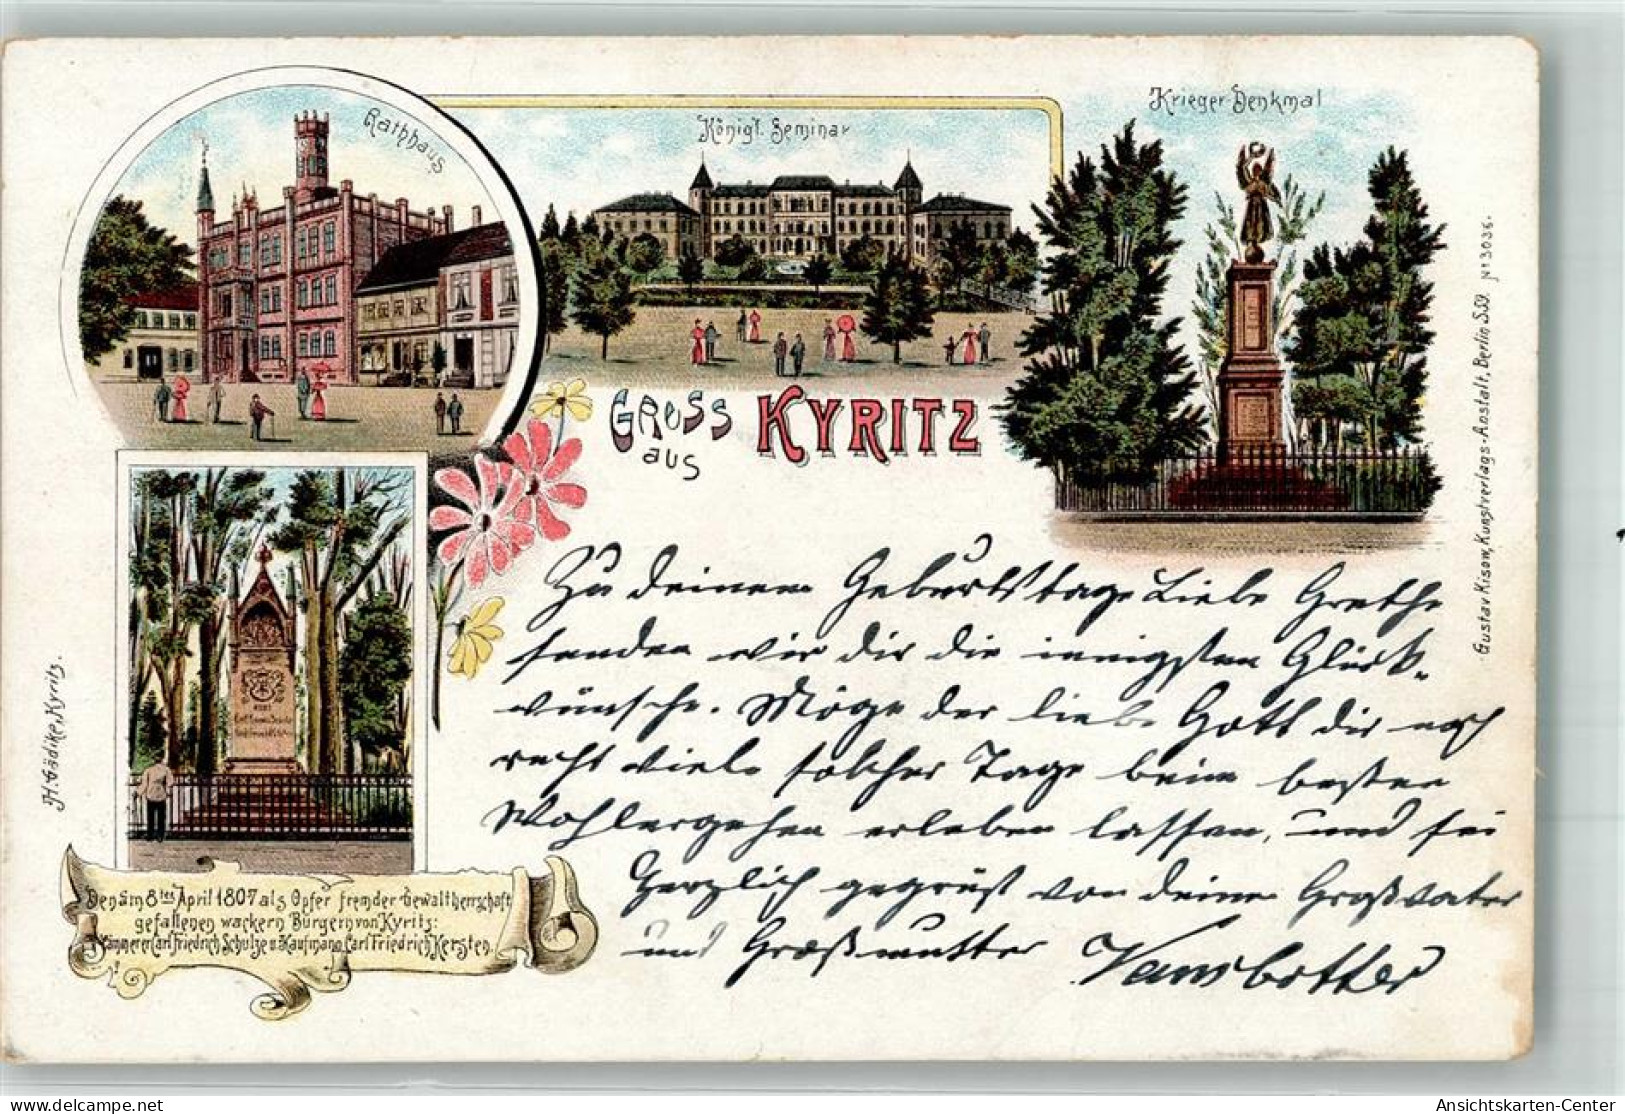 Rathhaus
Königl. Seminar
Krieger-Denkmal
GRUSS
aus
KYRITZ
Zu deinem Geburtstage Liebe Grethe
senden wir dir die innigsten Glück-
wünsche. Möge der liebe Gott dir noch
recht viele solcher Tage beim besten
Wohlergehen erleben lassen, und sei
Herzlich gegrüst von deinen Großvater
und Großmutter
Den am 8ten April 1807 als Opfer fremder Gewaltherrschaft
gefallenen wackern Bürgern von Kyritz:
Kämmerer Carl Friedrich Schulze u. Kaufmann Carl Friedrich Kersten.
H. Gädike, Kyritz.
Gustav Kisom, Kunstverlags-Anstalt, Berlin S.59. No 3036.
Ansichtskarten-Center
picclick.de